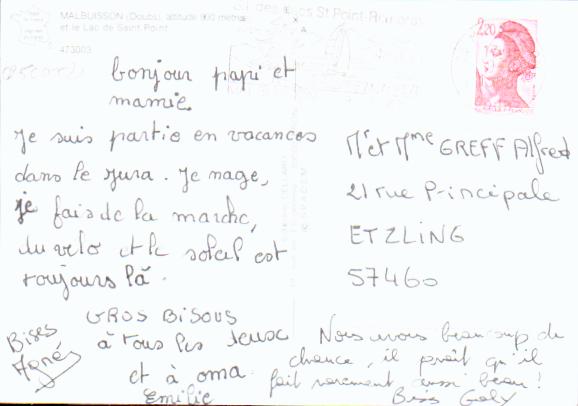 MALBUISSON (Doubs), altitude 900 mètres
et le Lac de Saint-Point
473003
St Point
2,20
bonjour papi et
mamie.
Je suis partie en vacances
dans le Jura. Je nage,
je fais de la marche,
du velo et le soleil est
toujours là.
GROS BISOUS
à tous les deux
et à oma.
Emilie
Bises
Agnés
Mr et Mme GREFF Alfred
21 rue Principale
ETZLING
57460
Nous avons beaucoup de
chance, il paraît qu'il
fait rarement aussi beau!
Bises Gaby